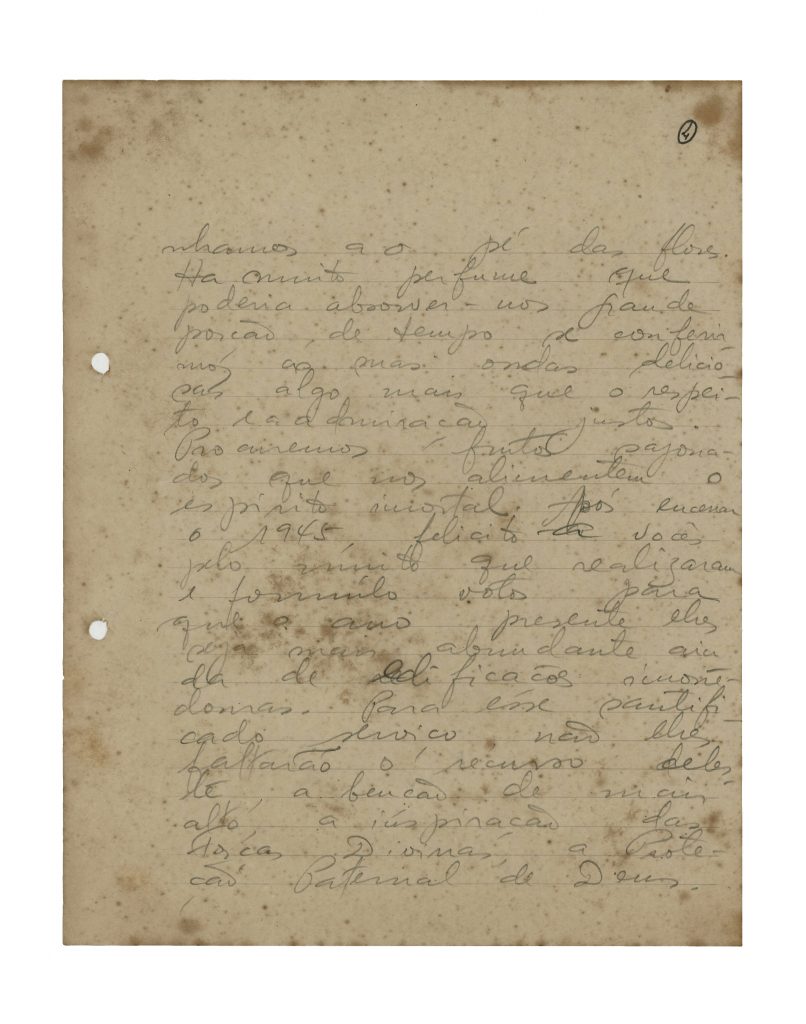 4
nhamos ao pé das flores.
Ha muito perfume que
poderia absorver-nos grande
porção de tempo se conferir
mos as suas ondas delicio
sas algo mais que o respei-
to e a admiração justos.
Procuremos frutos sazona-
dos que nos alimentem o
espírito imortal. Após encerrar
o 1945, felicito a vocês
pelo muito que realizaram
e formulo votos para
que o ano presente lhes
seja mais abundante ain
da de edificações
douras. Para esse santifi-
cado serviço não lhes
faltarão o recurso celes-
te, a benção de mais
alto, a inspiração das
Forças Divinas, a Prote-
ção Paternal de Deus.